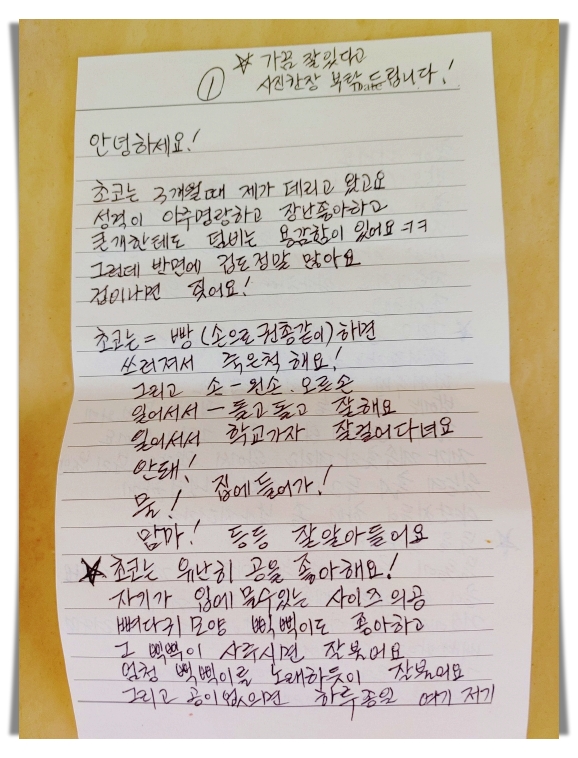 ☆ 가끔 잘있다고
① 사진한장 부탁드립니다!
안녕하세요!
초코는 3개월때 제가 데리고 왔고요
성격이 아주명랑하고 장난좋아하고
큰개한테도 덤비는 용감함이 있어요 ㅋㅋ
그런데 반면에 겁도정말 많아요
겁이나면 짖어요!
초코는= 빵 (손으로 권총같이) 하면
쓰러져서 죽은척 해요!
그리고 손 - 왼손. 오른손
일어서서 - 돌고 돌고 잘해요
일어서서 학교가자 잘걸어다녀요
안돼!
물! 집에들어가!
맘마! 등등 잘알아들어요
★ 초코는 유난히 공을 좋아해요!
자기가 입에 물수있는 사이즈의공
뼈다귀 모양 삑삑이도 좋아하고
그 삑삑이 사주시면 잘불어요
엄청 삑삑이를 노래하듯이 잘불어요
그리고 공이없으면 하루종일 여기 저기